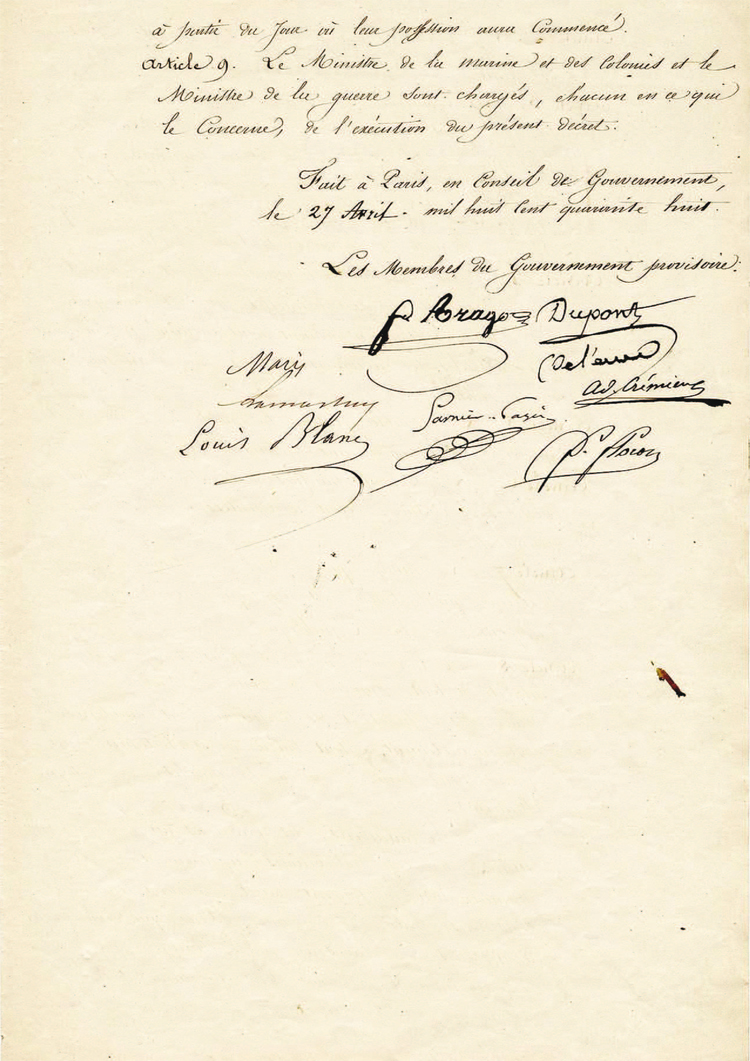 à partir du Jour où leur possession aura Commencé.
Article 9. Le Ministre de la marine et des Colonies et le
Ministre de la guerre sont chargés, chacun en ce qui
le Concerne, de l'exécution du présent décret.
Fait à Paris, en Conseil de Gouvernement,
le 27 Avril. mil huit cent quarante huit.
Les Membres du Gouvernement provisoire:
F. Arago Dupont
(de l'eure)
Marie
Ad. Crémieux
Lamartine
Garnier-Pagès
Louis Blanc
F. Flocon